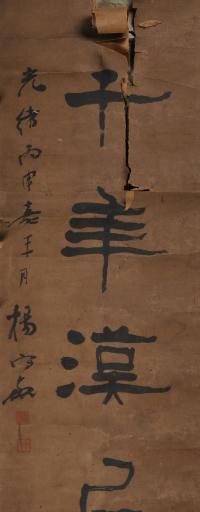 千年漢
光緒丙申嘉平月楊守敬